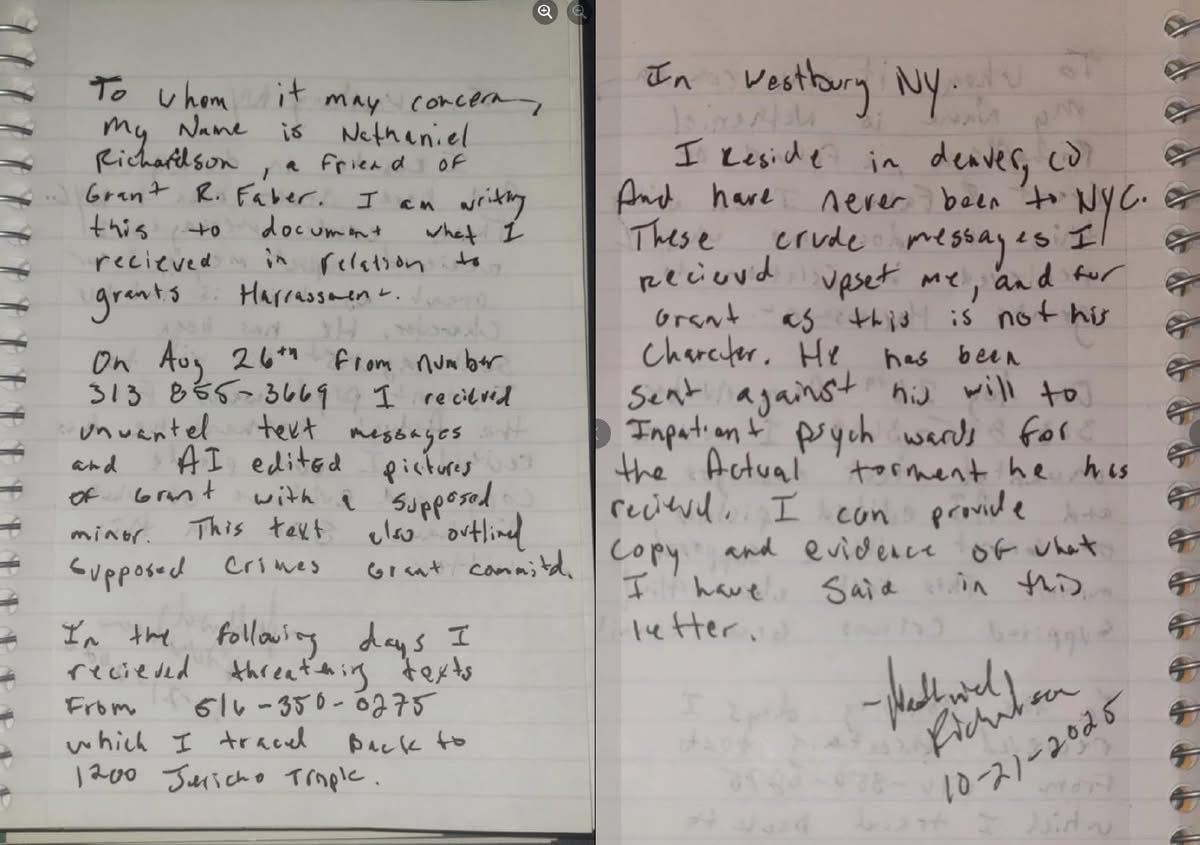 To whom it may concern,
My Name is Nathaniel
Richardson, a friend of
Grant R. Faber. I am writing
this to document what I
recieved in relation to
grants Harrassment.
On Aug 26th from number
313 855-3669 I recieved
unwantel text messages
and AI edited pictures
of Grant with a supposed
minor. This text also outlined
supposed crimes Grant commitd.
In the following days I
recieved threatening texts
From 516-350-0275
which I traced back to
1200 Jericho Trnple.
In Westbury NY.
I reside in denver, CO
And have never been to NYC.
These crude messages I
recieved upset me, and for
Grant as this is not his
Charcter. He has been
sent against his will to
Inpatient psych wards for
the Actual torment he has
recieved. I can provide
copy and evidence of what
I have said in this
letter.
-Nathaniel
Richardson
10-21-2025